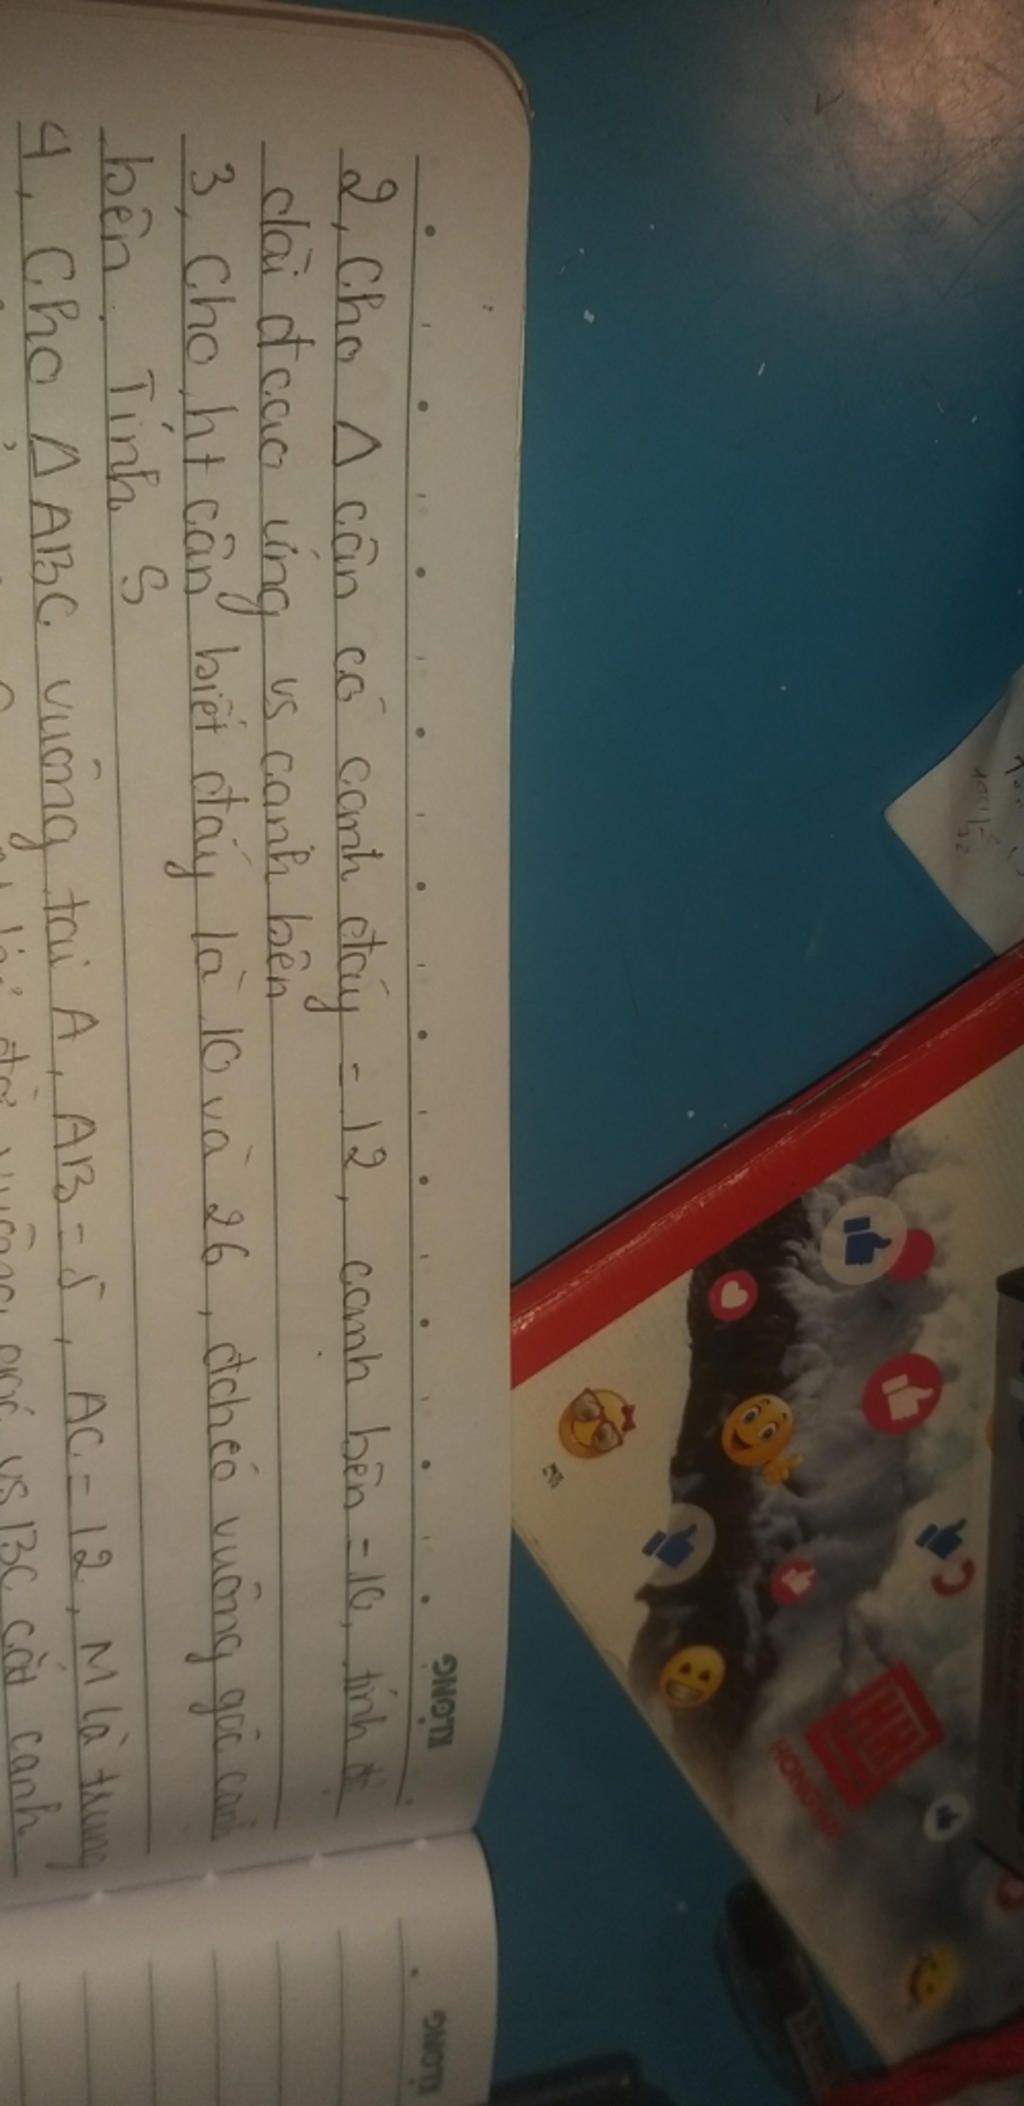 KLONG
2, Cho Δ cân có cạnh đáy = 12, cạnh bên = 10, tính độ
dài đcao ứng vs cạnh bên
3, Cho ht cân biết đáy là 10 và 26, đchéo vuông góc cạnh
bên. Tính S
4, Cho Δ ABC vuông tại A, AB = 5, AC = 12, M là trung
vuông góc vs BC cắt cạnh
KLONG
HONG